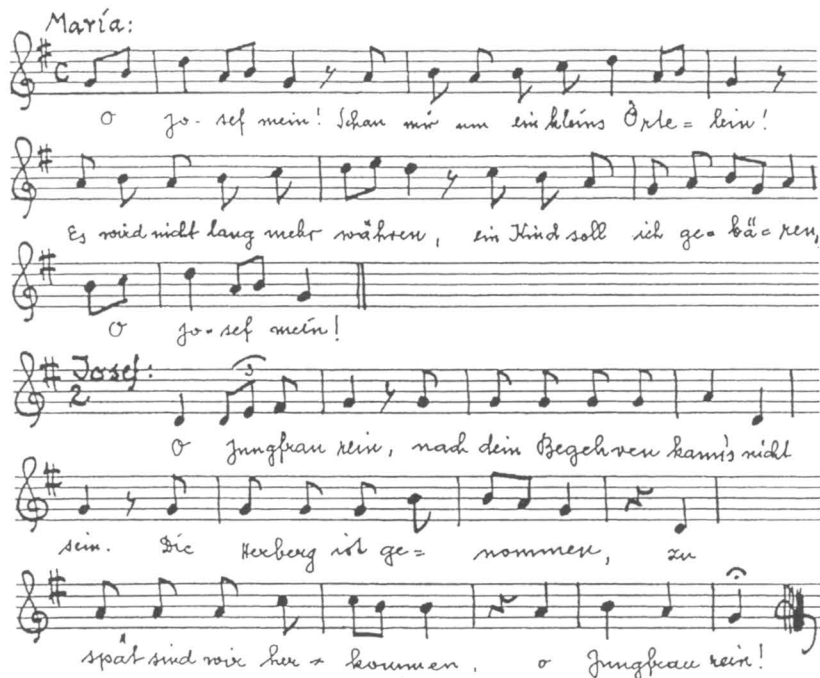 María:
O Jo- sef mein! Schau mir um ein kleins Örte= lein!
Es wird nicht lang mehr währen, ein Kind soll ich ge= bä= ren,
O Jo- sef mein!
Josef:
2
3
O Jungfrau rein, nach dein Begehren kann's nicht
sein. Die Herberg ist ge= nommen, zu
spät sind wir her= kommen, o Jungfrau rein!